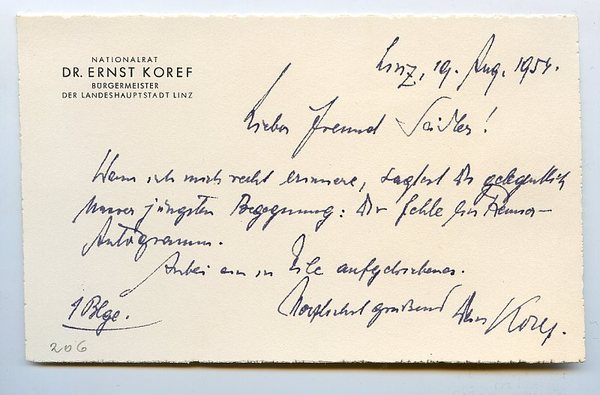 NATIONALRAT
DR. ERNST KOREF
BÜRGERMEISTER
DER LANDESHAUPTSTADT LINZ
Linz, 19. Aug. 1954.
Lieber Freund Seidler!
Wenn ich mich recht erinnere, sagtest Du gelegentlich
unserer jüngsten Begegnung: Dir fehle ein Renner-
Autogramm.
Anbei ein in Eile aufgeschriebenes.
Herzlichst grüßend Dein Koref.
1 Blge.
206